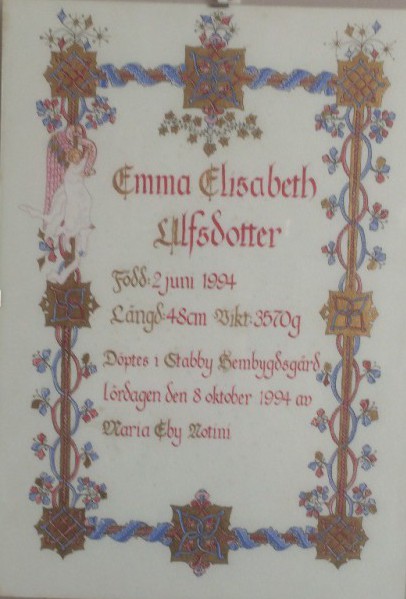 Emma Elisabeth
Ulfsdotter
Född: 2 juni 1994
Längd: 48cm Vikt: 3570g
Döptes i Stabby Hembygdsgård
lördagen den 8 oktober 1994 av
Maria Eby Notini